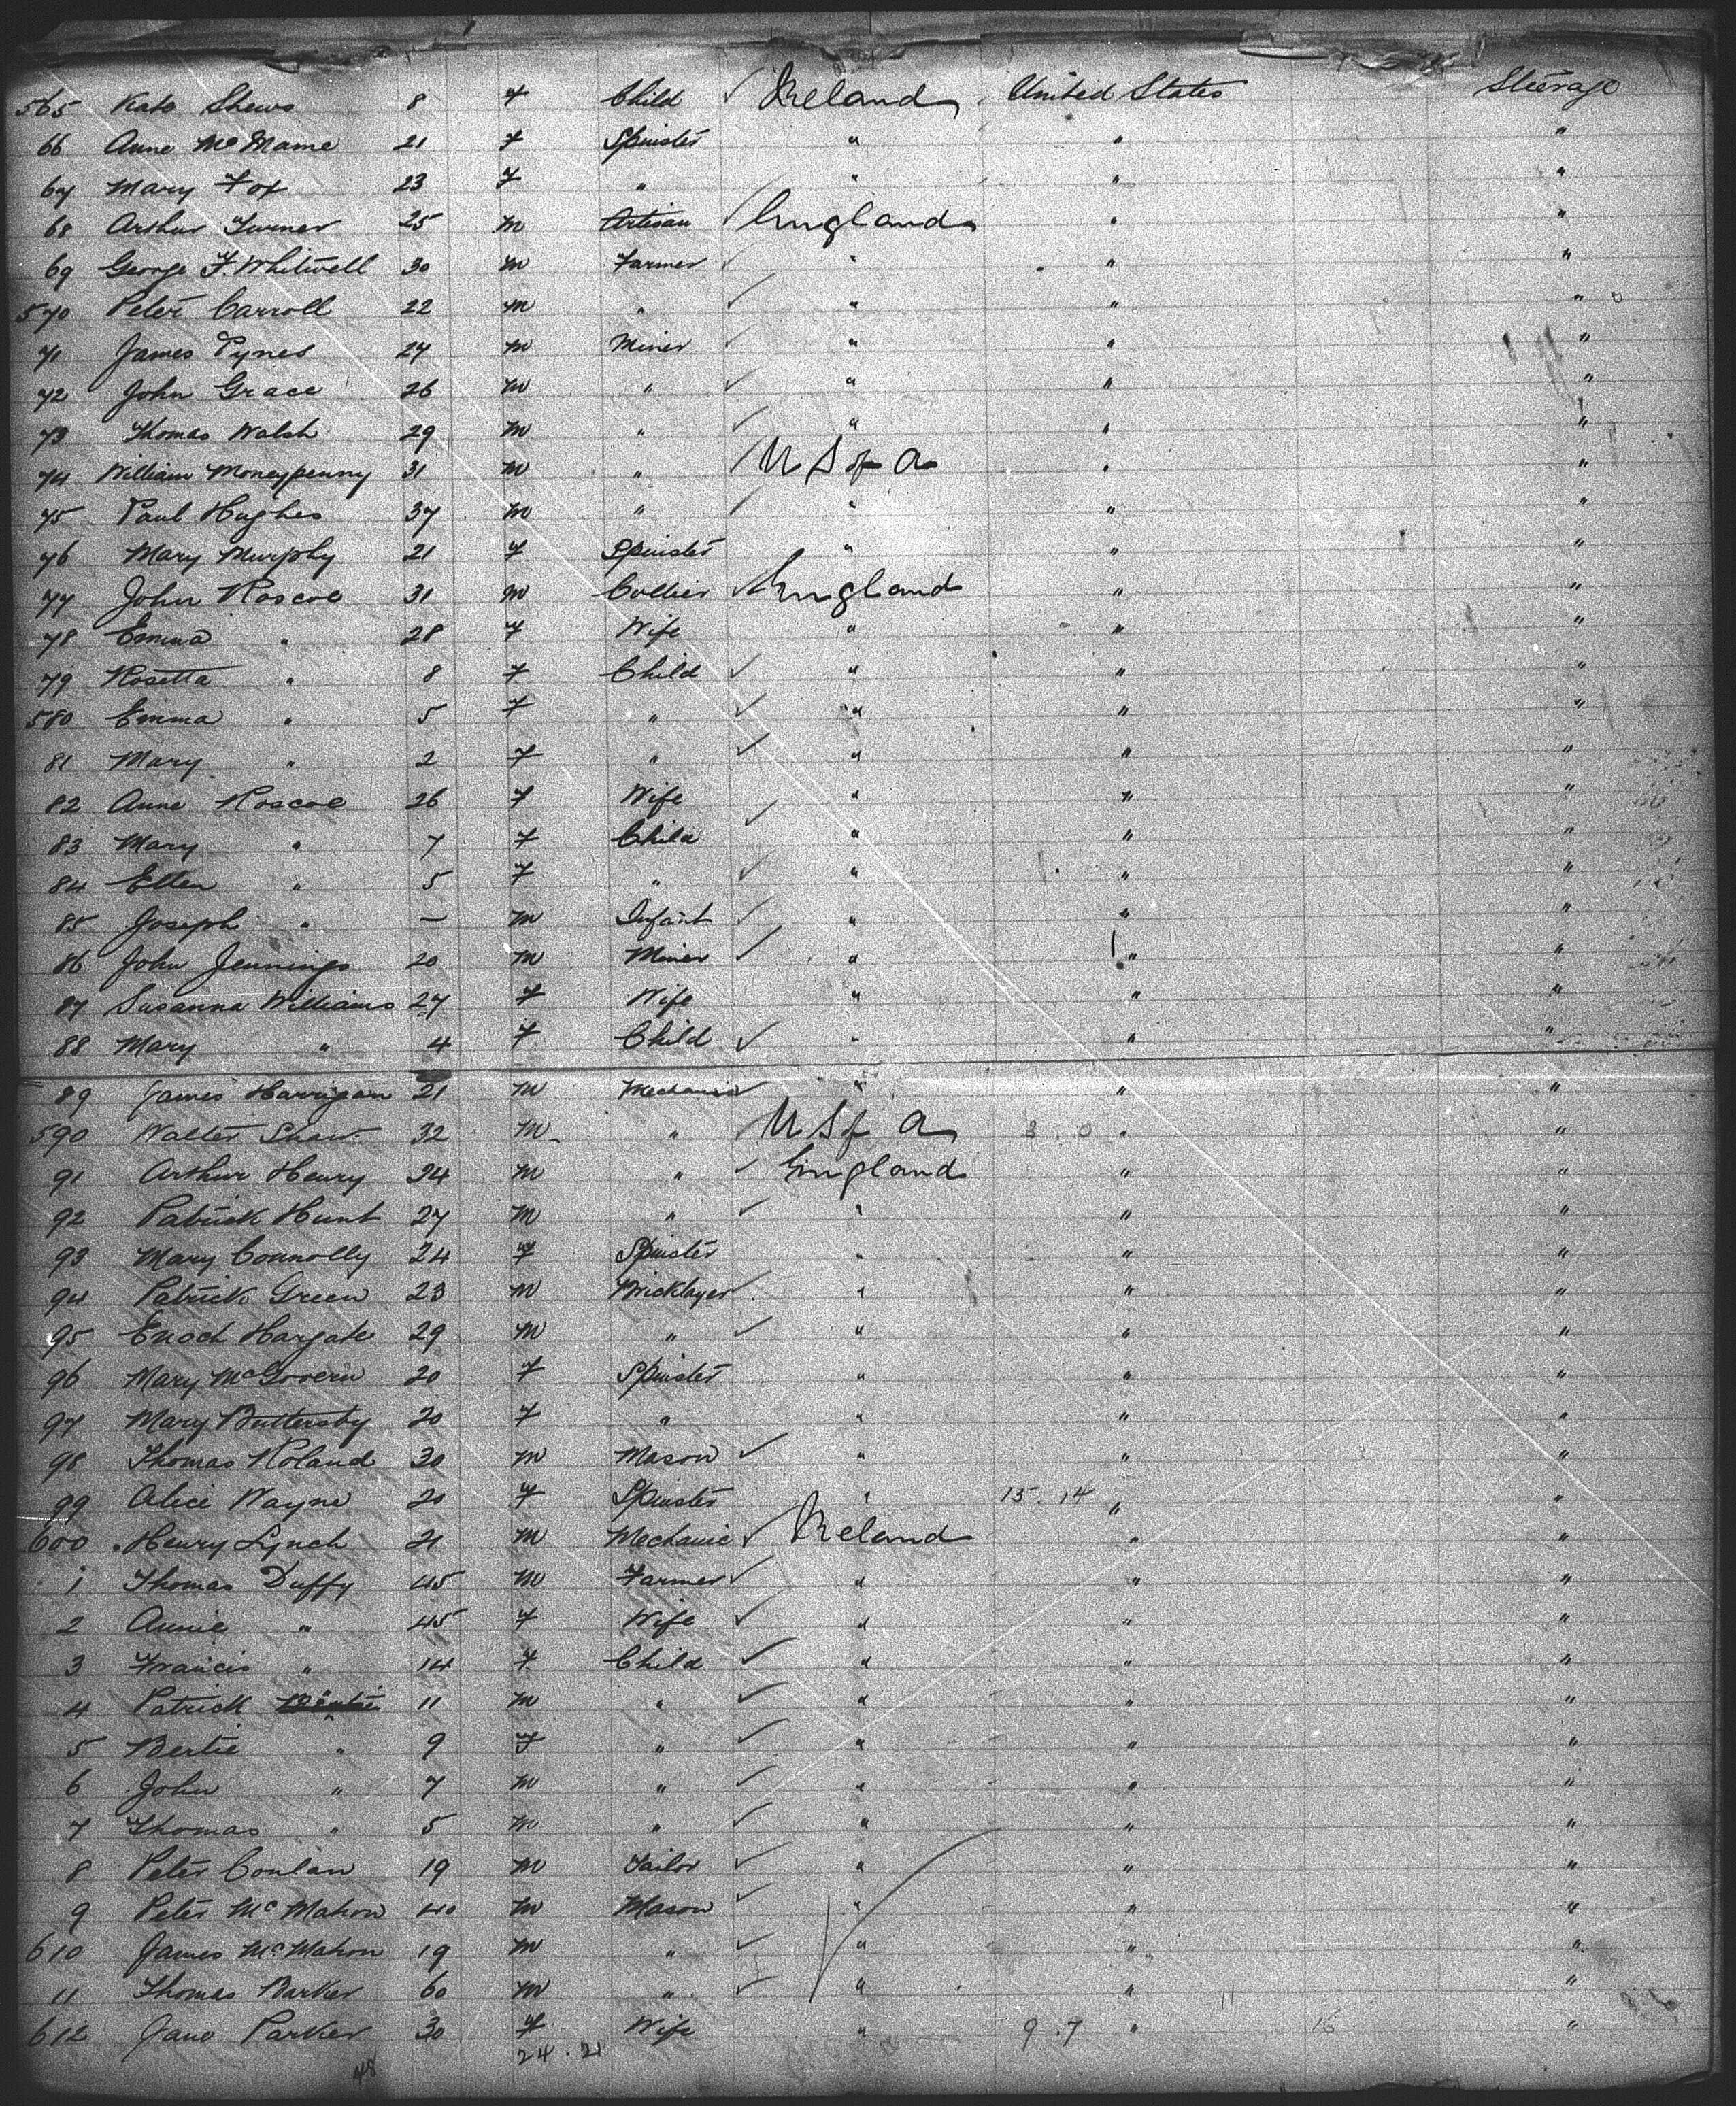 565 Kate Shews 8 F Child ✓ Ireland United States Steerage
66 Anne McMame 21 F Spinster " " "
67 Mary Fox 23 F " " " "
68 Arthur Turner 25 M Artisan ✓ England " "
69 George F. Whitwell 30 M Farmer ✓ " " "
570 Peter Carroll 22 M " ✓ " " "
71 James Pynes 27 M Miner ✓ " " "
72 John Grace 26 M " ✓ " " "
73 Thomas Walsh 29 M " ✓ " " "
74 William Moneypenny 31 M " ✓ U S of A " "
75 Paul Hughes 37 M " ✓ " " "
76 Mary Murphy 21 F Spinster " " "
77 John Roscoe 31 M Collier ✓ England " "
78 Emma " 28 F Wife " " "
79 Rosetta " 8 F Child ✓ " " "
580 Emma " 5 F " ✓ " " "
81 Mary " 2 F " ✓ " " "
82 Anne Roscoe 26 F Wife ✓ " " "
83 Mary " 7 F Child " " "
84 Ellen " 5 F " ✓ " " "
85 Joseph " — M Infant ✓ " " "
86 John Jennings 20 M Miner ✓ " " "
87 Susanna Williams 27 F Wife " " "
88 Mary " 4 F Child ✓ " " "
89 James Harrigan 21 M Mechanic ✓ " " "
590 Walter Shaw 32 M " ✓ U S of A " "
91 Arthur Henry 24 M " ✓ England " "
92 Patrick Hunt 27 M " ✓ " " "
93 Mary Connolly 24 F Spinster " " "
94 Patrick Green 23 M Bricklayer ✓ " " "
95 Enoch Hargate 29 M " ✓ " " "
96 Mary McGovern 20 F Spinster " " "
97 Mary Buttersby 20 F " " " "
98 Thomas Roland 30 M Mason ✓ " " "
99 Alice Wayne 20 F Spinster " 15.14 " "
600 Henry Lynch 21 M Mechanic ✓ Ireland " "
1 Thomas Duffy 45 M Farmer ✓ " " "
2 Annie " 45 F Wife ✓ " " "
3 Francis " 14 F Child ✓ " " "
4 Patrick 11 M " ✓ " " "
5 Bertie " 9 F " ✓ " " "
6 John " 7 M " ✓ " " "
7 Thomas " 5 M " ✓ " " "
8 Peter Conlan 19 M Tailor ✓ " " "
9 Peter McMahon 40 M Mason ✓ " " "
610 James McMahon 19 M " ✓ " " "
11 Thomas Barker 60 M " ✓ " " "
612 Jane Parker 30 F Wife " 9.7 " 16 "
48 24.21